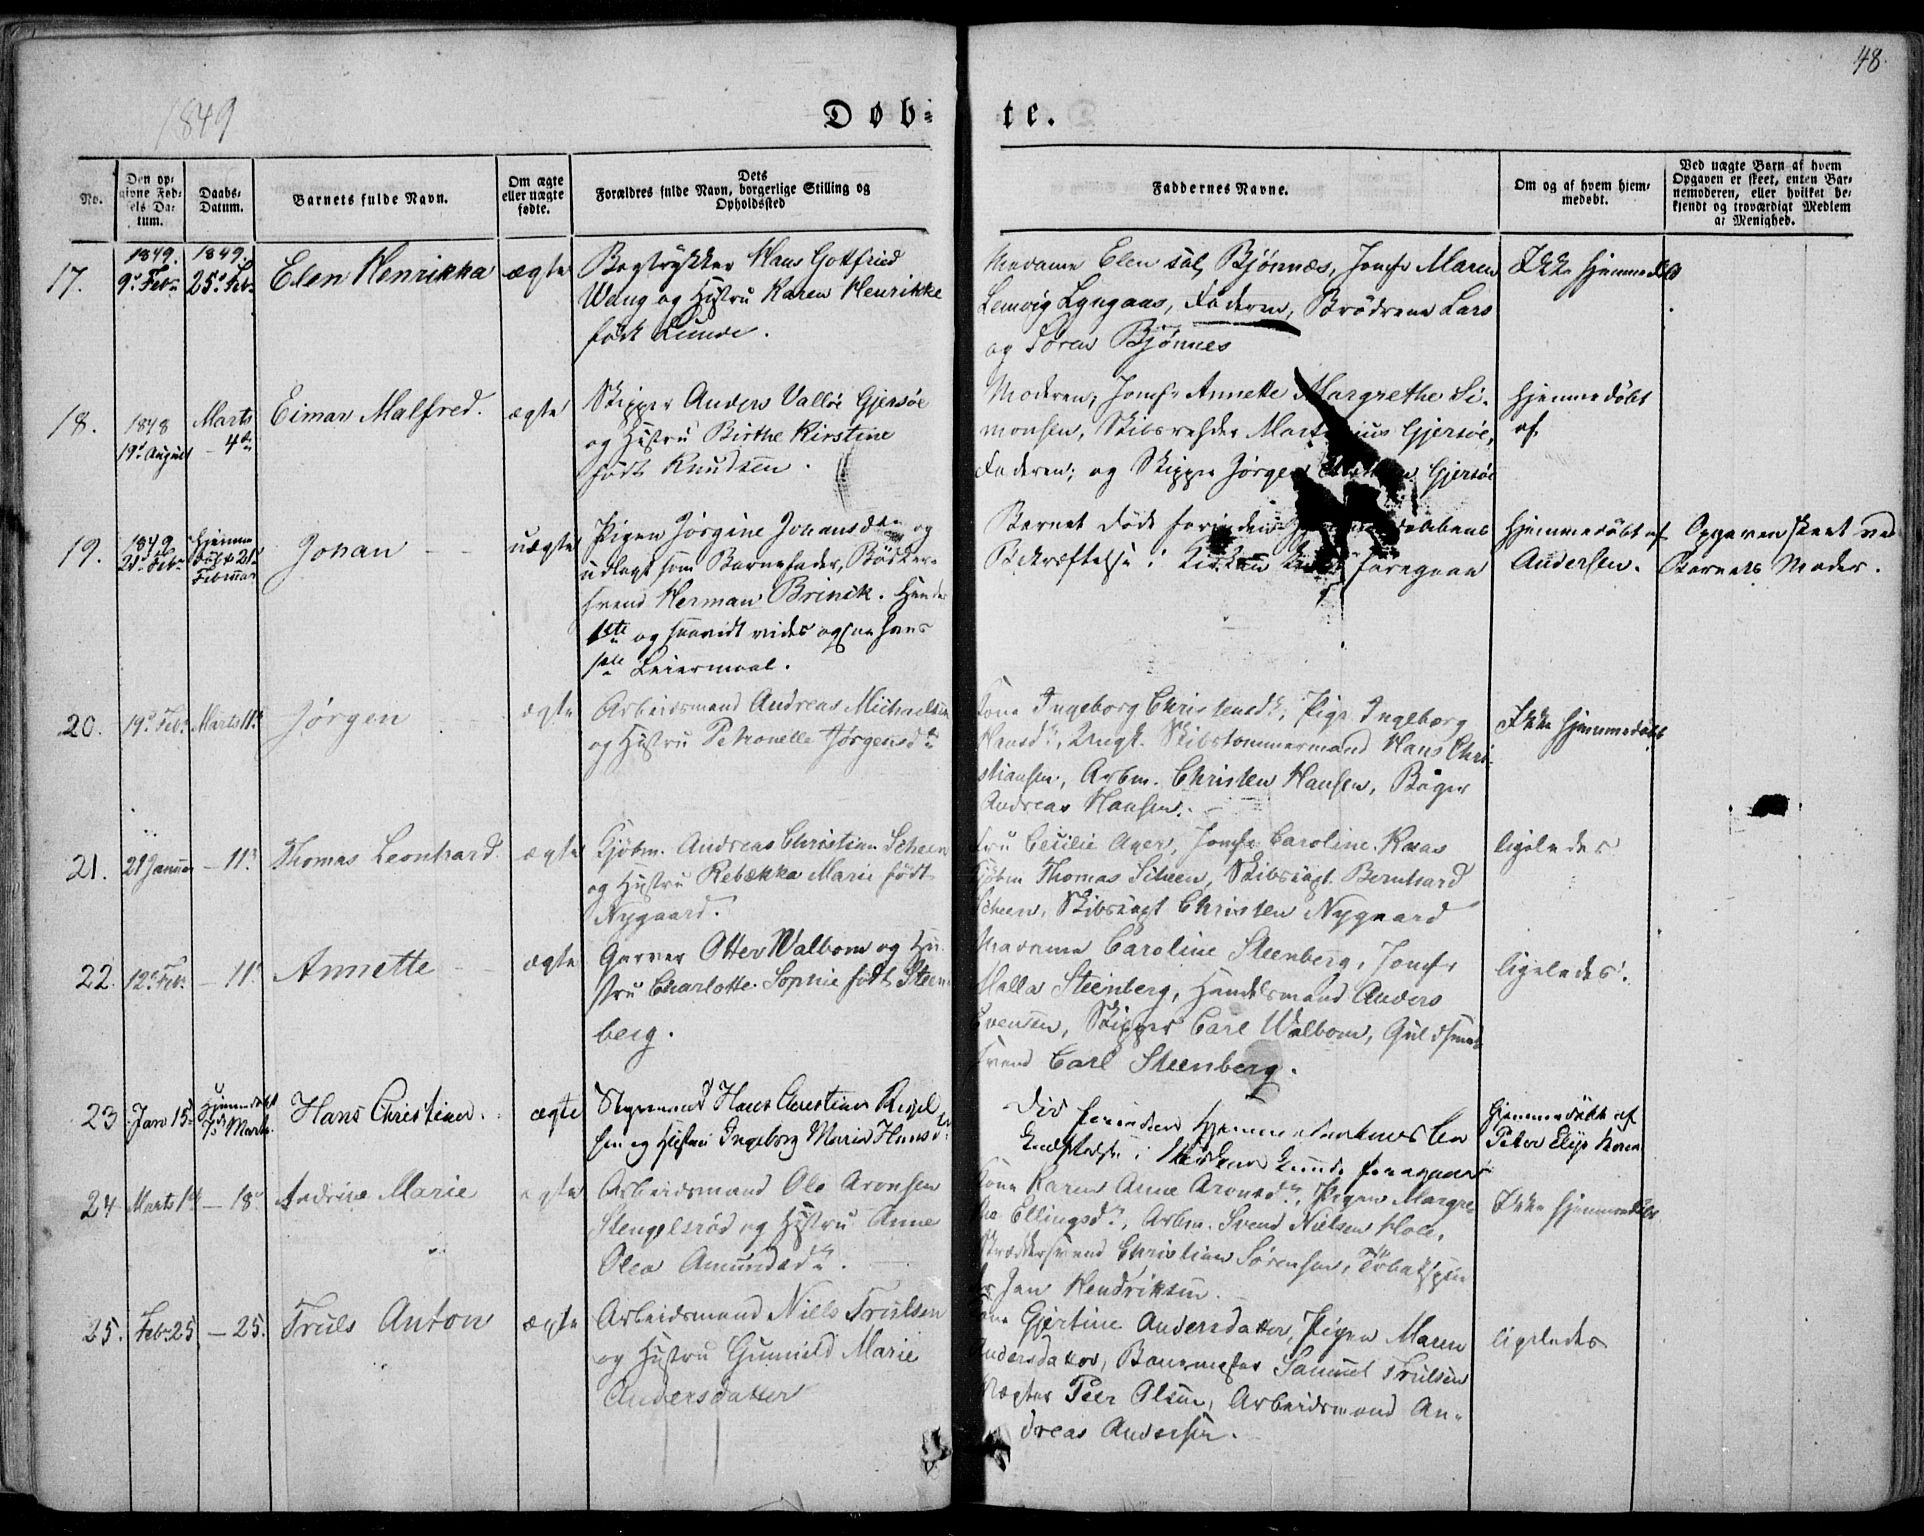 48.
1849
Døb-
te.
No.
Den op-
givne Fød-
sels Da-
tum.
Daabs-
Datum.
Barnets fulde Navn.
Om ægte
eller uægte
fødte.
Dets
Forældres fulde Navn, borgerlige Stilling og
Opholdssted
Faddernes Navne.
Om og af hvem hjem-
medøbt.
Ved uægte Børn af hvem
Opgaven er skeet, enten Bar-
nemoderen, eller hvilket be-
kjendt og troværdigt Medlem
af Menighed.
17.
1849.
9de Febr
1849.
25de Feb.
Elen Henrikka
ægte
Bogtrykker Hans Gottfried
Wang og Hustru Karen Henrikke
født Lunde.
Madame Elen Bjönnes, Jomfr Maren
Lemvig Lyngaas, Faderen, Brödrene Lars
og Sören Bjönnes
Ikke hjemmedöbt
18.
1848
19de August
Marts
4de
Eimar Malfred.
ægte
Skipper Anders Valløe Gjersøe
og Hustru Birthe Kirstine
født Knudsen.
Moderen, Jomfr Annette Margrethe Si-
monsen, Skibsrheder Gjersøe,
Faderen; og Skipper Jørgen Gjersøe
Hjemmedöbt
af
19.
1849
21de Febr
Hjemme
döbt 21de
Februar
Johan
uægte
Pigen Jørgine Johansdtr og
udlagt som Barnefader, Bödker-
svend Herman Brinck. Hendes
1ste og saavidt vides ogsaa hans
1ste Leiermaal.
Barnet døde forinden
Bekræftelse i Kirken foregaae
Hjemmedöbt af
Andersen.
Opgaven skeet ved
Barnets Moder.
20.
19de Febr
Marts 11te
Jørgen
ægte
Arbeidsmand Andreas Michaelsen
og Hustru Petronelle Jørgensdtr
Kone Ingeborg Christensdtr, Pige Ingeborg
Hansdtr, Ungk. Skibstømmermand Hans Chri-
stiansen, Arbm. Christen Hansen, Bager
Andreas Hansen.
Ikke hjemmedöbt
21.
21 Januar
– 11te
Thomas Leonhard
ægte
Kjøbm. Andreas Christian Scheen
og Hustru Rebækka Marie født
Nygaard.
Fru Cecilie Ager, Jomfr Caroline Raas
Kjøbm Thomas Scheen, Skibscapt. Bernhard
Scheen, Skibscapt Christen Nygaard
ligeledes
22.
12te Febr
– 11te
Annette
ægte
Garver Otter Walbom og Hu-
stru Charlotte Sophie født Steen-
berg.
Madame Caroline Steenberg, Jomfr
Malla Steenberg, Handelsmand Anders
Evensen, Skipper Carl Walbom, Guldsmed
svend Carl Steenberg.
ligeledes.
23
Jan 15de
Hjemmedøbt
7de Marts.
Hans Christian.
ægte
Styrmand Hans Christian
sen og Hustru Ingeborg Marie Hansd
Død forinden Hjemmedaabens
Bekræftelse i Kirken kunde foregaae
Hjemmedöbt af
24
Marts 1ste
– 18de
Andrine Marie
ægte
Arbeidsmand Ole Aronsen
Stengelsrød og Hustru Anne
Olea Amundsdtr.
Kone Karen Anne Aronsdtr, Pigen Margre-
the Ellingsdtr, Arbm. Svend Nielsen Hole,
Skræddersvend Christian Sørensen, Tobakspin
der Jan Hendriksen.
Ikke hjemmedöbt
25.
Febr 25
– 25.
Truls Anton
ægte
Arbeidsmand Niels Trulsen
og Hustru Gunnild Marie
Andersdatter
Kone Gjertine Andersdatter, Pigen Maren
Andersdatter, Samuel Trulsen
Vægter Peer Olsen, Arbeidsmand An-
dreas Andersen.
ligeledes